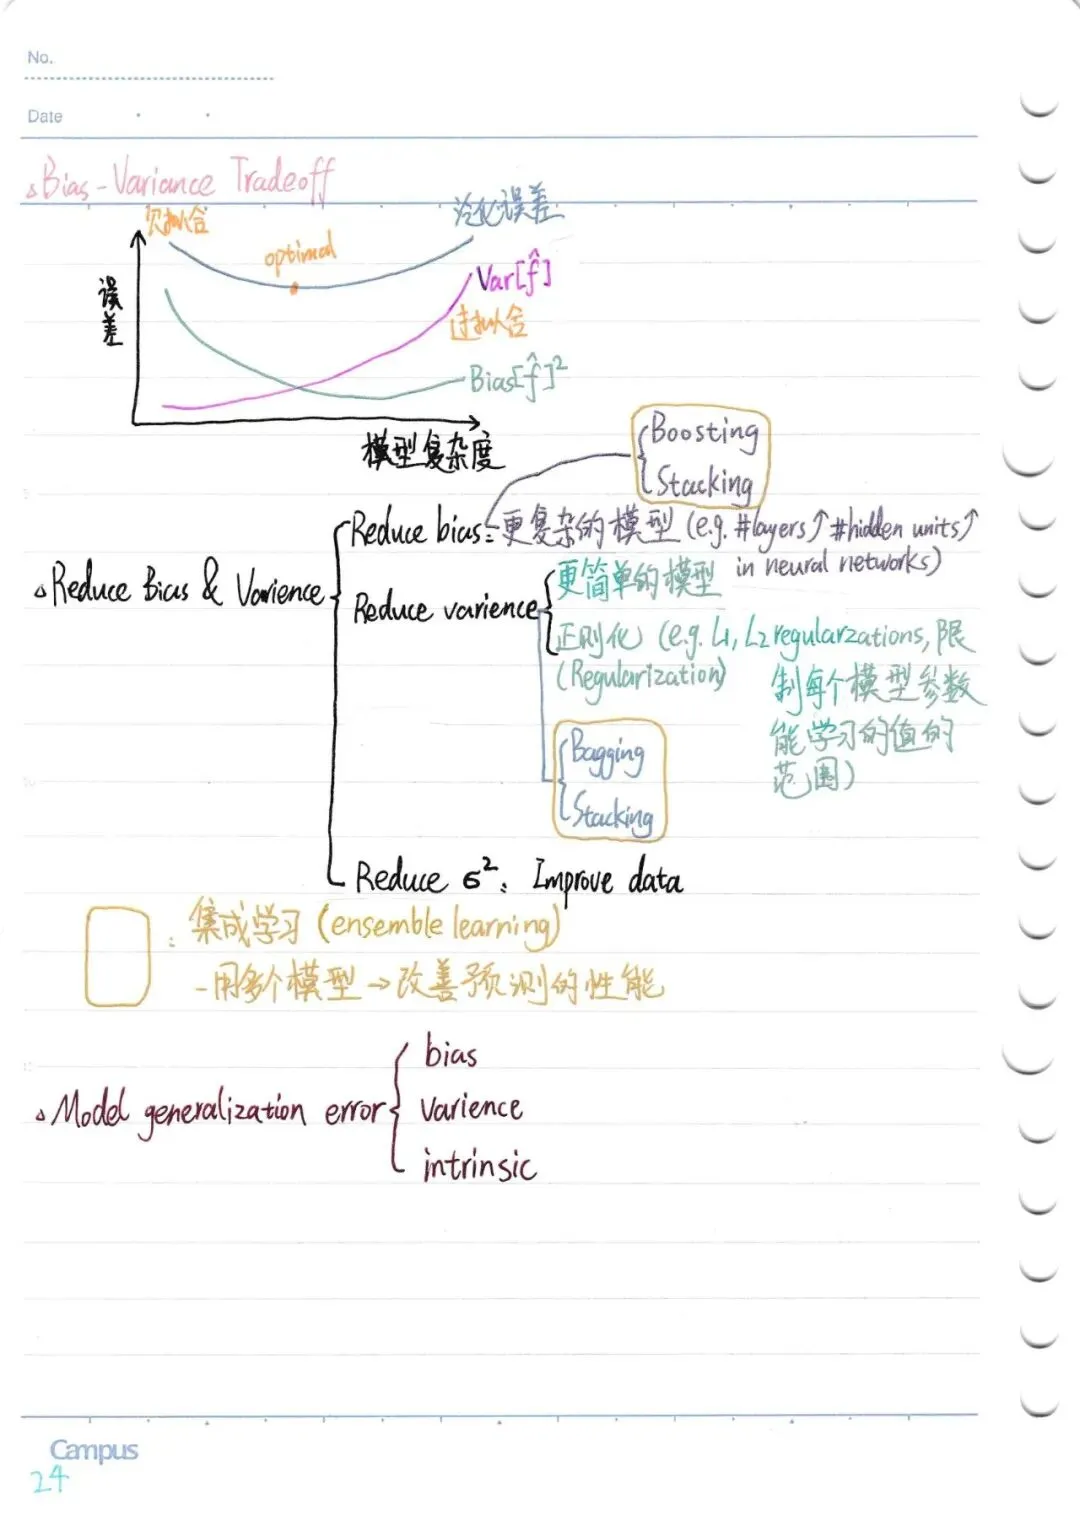 No.
Date
△Bias-Variance Tradeoff
欠拟合
泛化误差
optimal
误差
Var[f̂]
过拟合
Bias[f̂]²
模型复杂度
Boosting
Stacking
△Reduce Bias & Varience
Reduce bias: 更复杂的模型 (e.g. #layers↑ #hidden units↑
in neural networks)
Reduce varience
更简单的模型
正则化 (e.g. L1, L2 regularzations, 限
(Regularization) 制每个模型参数
能学习的值的
范围)
Bagging
Stacking
Reduce σ²: Improve data
: 集成学习 (ensemble learning)
-用多个模型→改善预测的性能
△Model generalization error
bias
varience
intrinsic
Campus
24